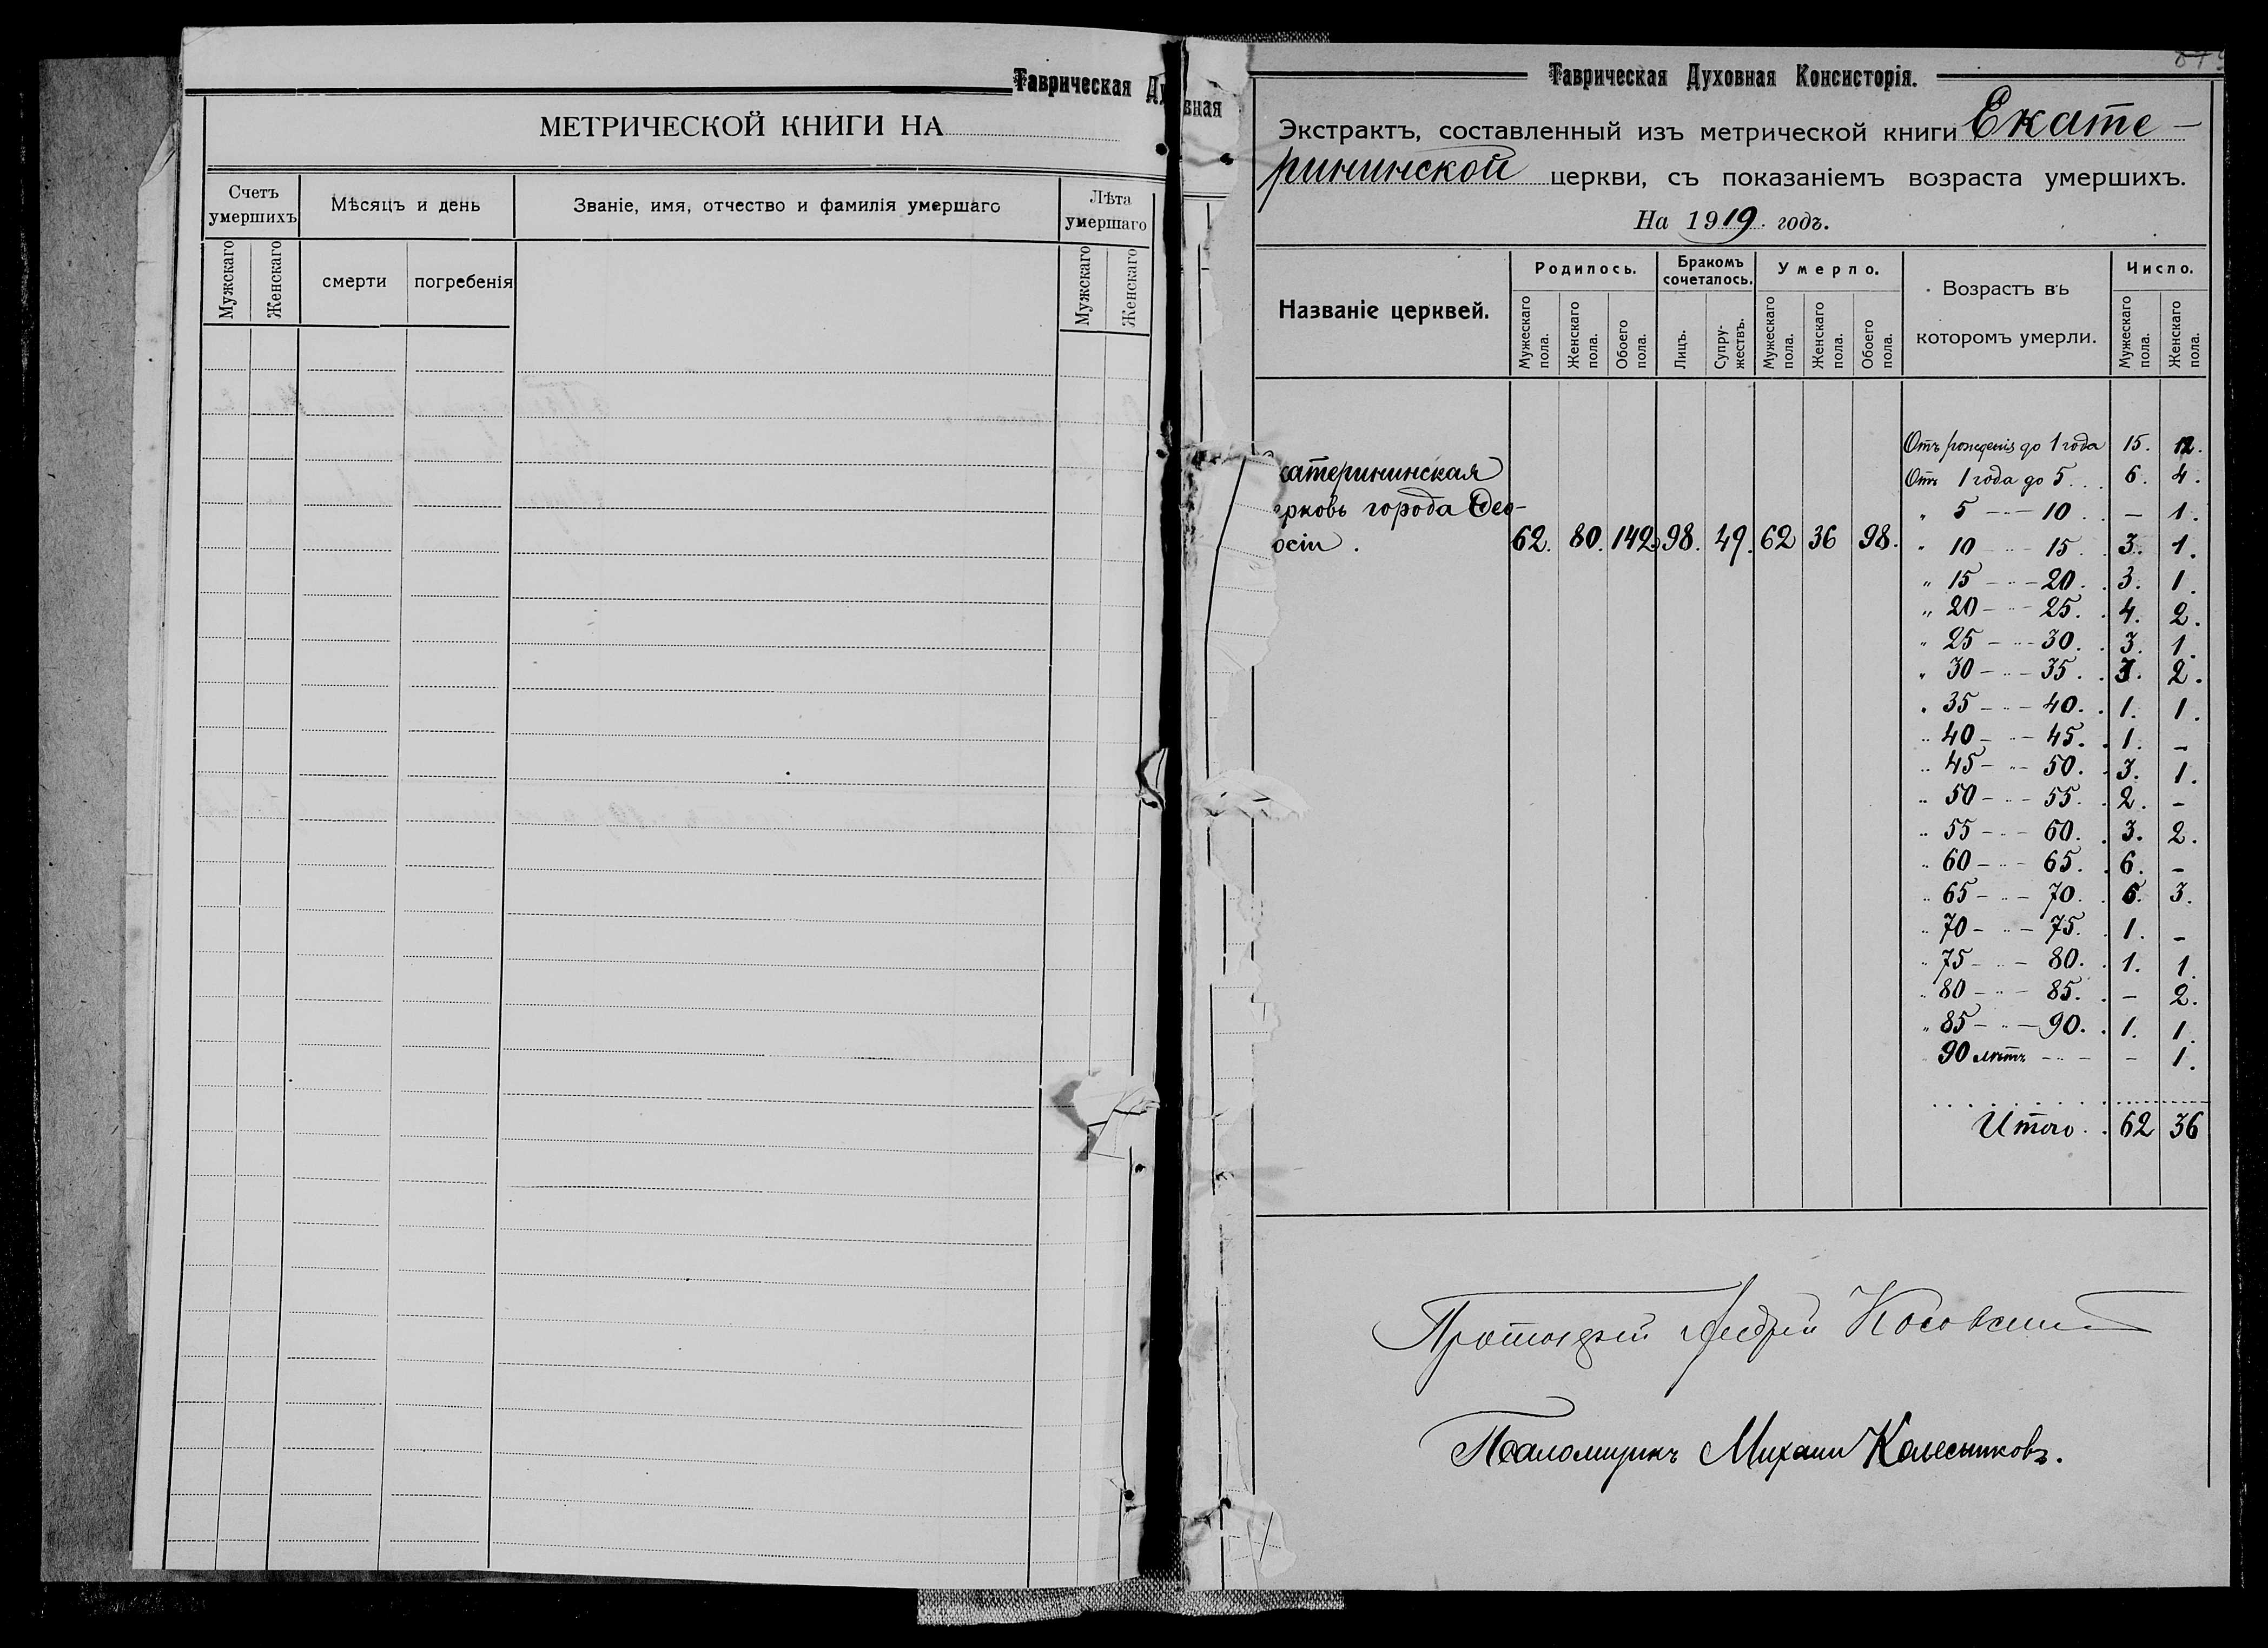 Таврическая Ду
МЕТРИЧЕСКОЙ КНИГИ НА
Счетъ умершихъ
Мѣсяцъ и день
Званіе, имя, отчество и фамилія умершаго
Лѣта умершаго
Мужскаго
Женскаго
смерти
погребенія
Мужскаго
Женскаго
вная
Таврическая Духовная Консисторія.
Экстрактъ, составленный изъ метрической книги Екате-
рининской церкви, съ показаніемъ возраста умершихъ.
На 1919 годъ.
Названіе церквей.
Родилось.
Бракомъ сочеталось.
Умерло.
Возрастъ въ
которомъ умерли.
Число.
Мужескаго пола.
Женскаго пола.
Обоего пола.
Лицъ.
Супружествъ.
Мужескаго пола.
Женскаго пола.
Обоего пола.
Мужескаго пола.
Женскаго пола.
Отъ рожденія до 1 года 15. 12.
Отъ 1 года до 5 . . . 6. 4.
" 5 - " - 10 . . - 1.
" 10 - " - 15 . . 3. 1.
катерининская
ерковь города Ѳео-
осіи .
62. 80. 142. 98. 49. 62 36 98.
" 15 - " - 20 . . 3. 1.
" 20 - " - 25 . . 4. 2.
" 25 - " - 30 . . 3. 1.
" 30 - " - 35 . . 3. 2.
" 35 - " - 40 . . 1. 1.
" 40 - " - 45 . . 1. -
" 45 - " - 50 . . 3. 1.
" 50 - " - 55 . . 2. -
" 55 - " - 60 . . 3. 2.
" 60 - " - 65 . . 6. -
" 65 - " - 70 . . 6. 3.
" 70 - " - 75 . . 1. -
" 75 - " - 80 . . 1. 1.
" 80 - " - 85 . . - 2.
" 85 - " - 90 . . 1. 1.
90 лѣтъ - " - - 1.
Итого . . 62 36
Протоіерей Андрей Косовский
Псаломщикъ Михаил Колесниковъ.